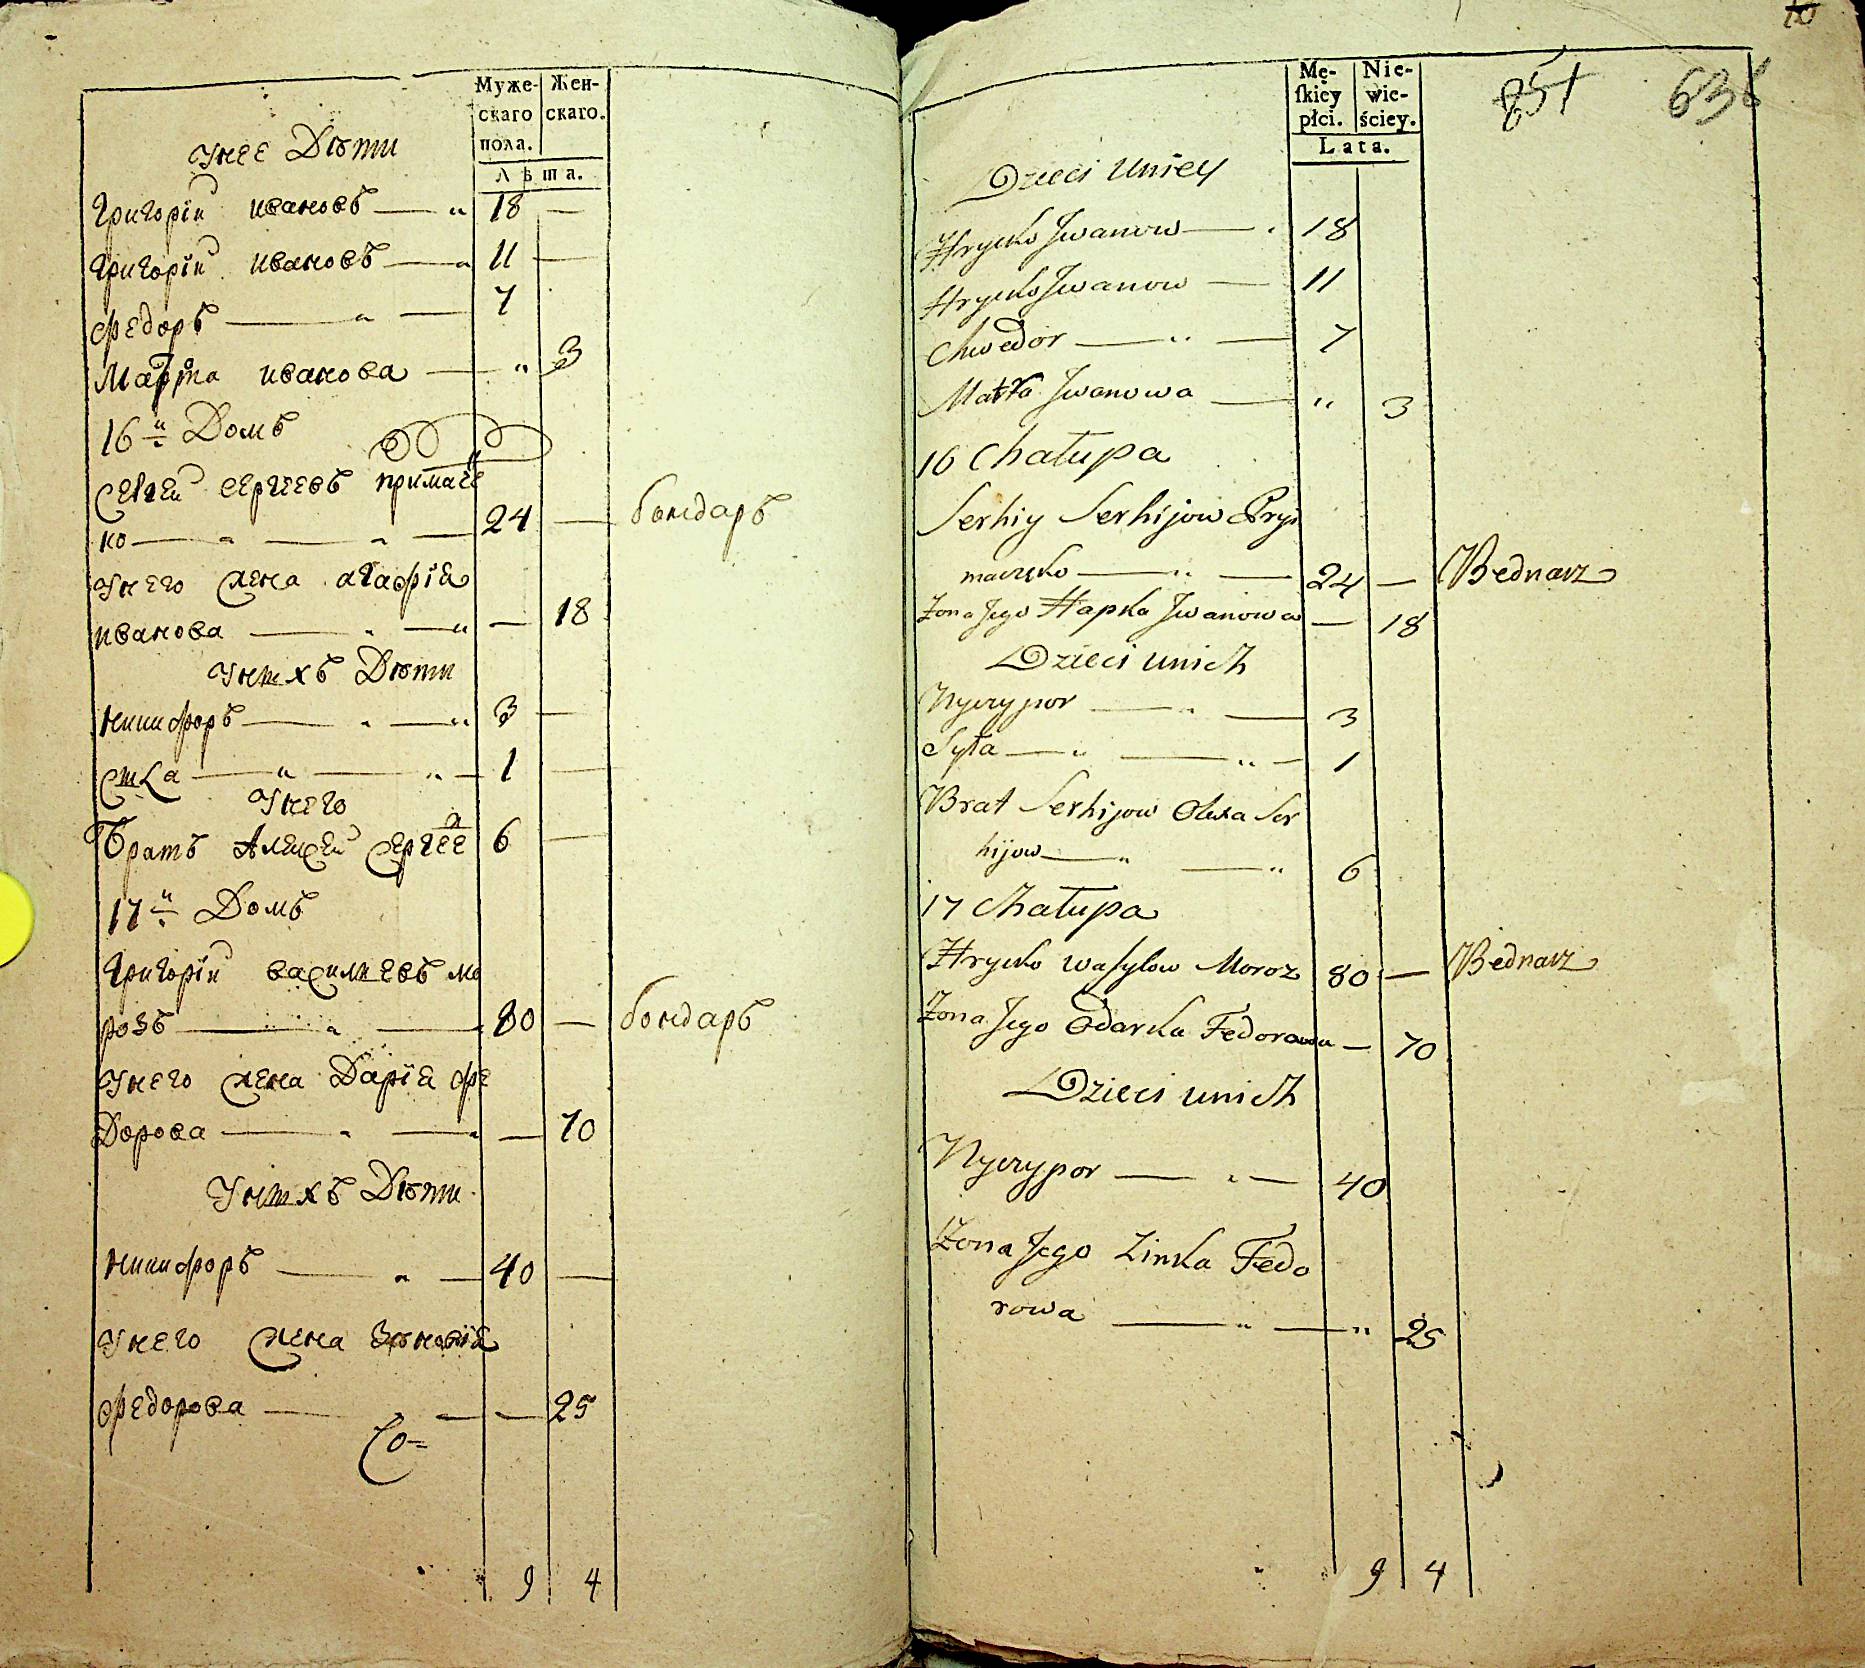 Муже- Жен-
скаго скаго.
пола.
Лѣта.
Унее Дѣти
Григорїи ивановъ — „ 18 —
Григорїи ивановъ — „ 11 —
Федоръ — „ — 7
Марта иванова — „ 3
16 и Домъ
Сергеи сергеевъ примаче
ко — „ — „ — 24 — бондарь
Унего жена агафїя
иванова — „ — „ — 18
Унихъ Дѣти
никифоръ — „ — „ 3 —
Сила — „ — „ — 1 —
Унего
Братъ Алексеи Сергее в 6 —
17 и Домъ
Григорїи василиевъ мо
розъ — „ — 80 — бондарь
Унего жена Дарїя фе
Дорова — „ — „ — 70
Унихъ Дѣти
никифоръ — „ — 40 —
Унего жена Зѣновїя
федорова — „ — — 25
Со=
9 4
10
Mę- Nie-
ſkiey wie-
płci. ściey.
Lata.
851 636
Dzieci Uniey
Hrycko Jwanow — „ 18
Hrycko Jwanow — 11
Chwedor — „ — 7
Jwanowa — „ 3
16 Chałupa
Serhiy Serhijow Pry
maczęko — „ — 24 — Bednarz
Żona Jego Hapka Jwanowa — 18
Dzieci unich
Nyczypor — „ — 3
Syła — „ — „ — 1
Brat Serhijow Olexa Ser
hijow — „ — „ 6
17 Chałupa
Hrycko Wasylow Moroz 80 — Bednarz
Żona Jego Odarka Fedorowa — 70
Dzieci unich
Nyczypor — „ — 40
Żona Jego Zinka Fedo
rowa — „ — „ 25
9 4